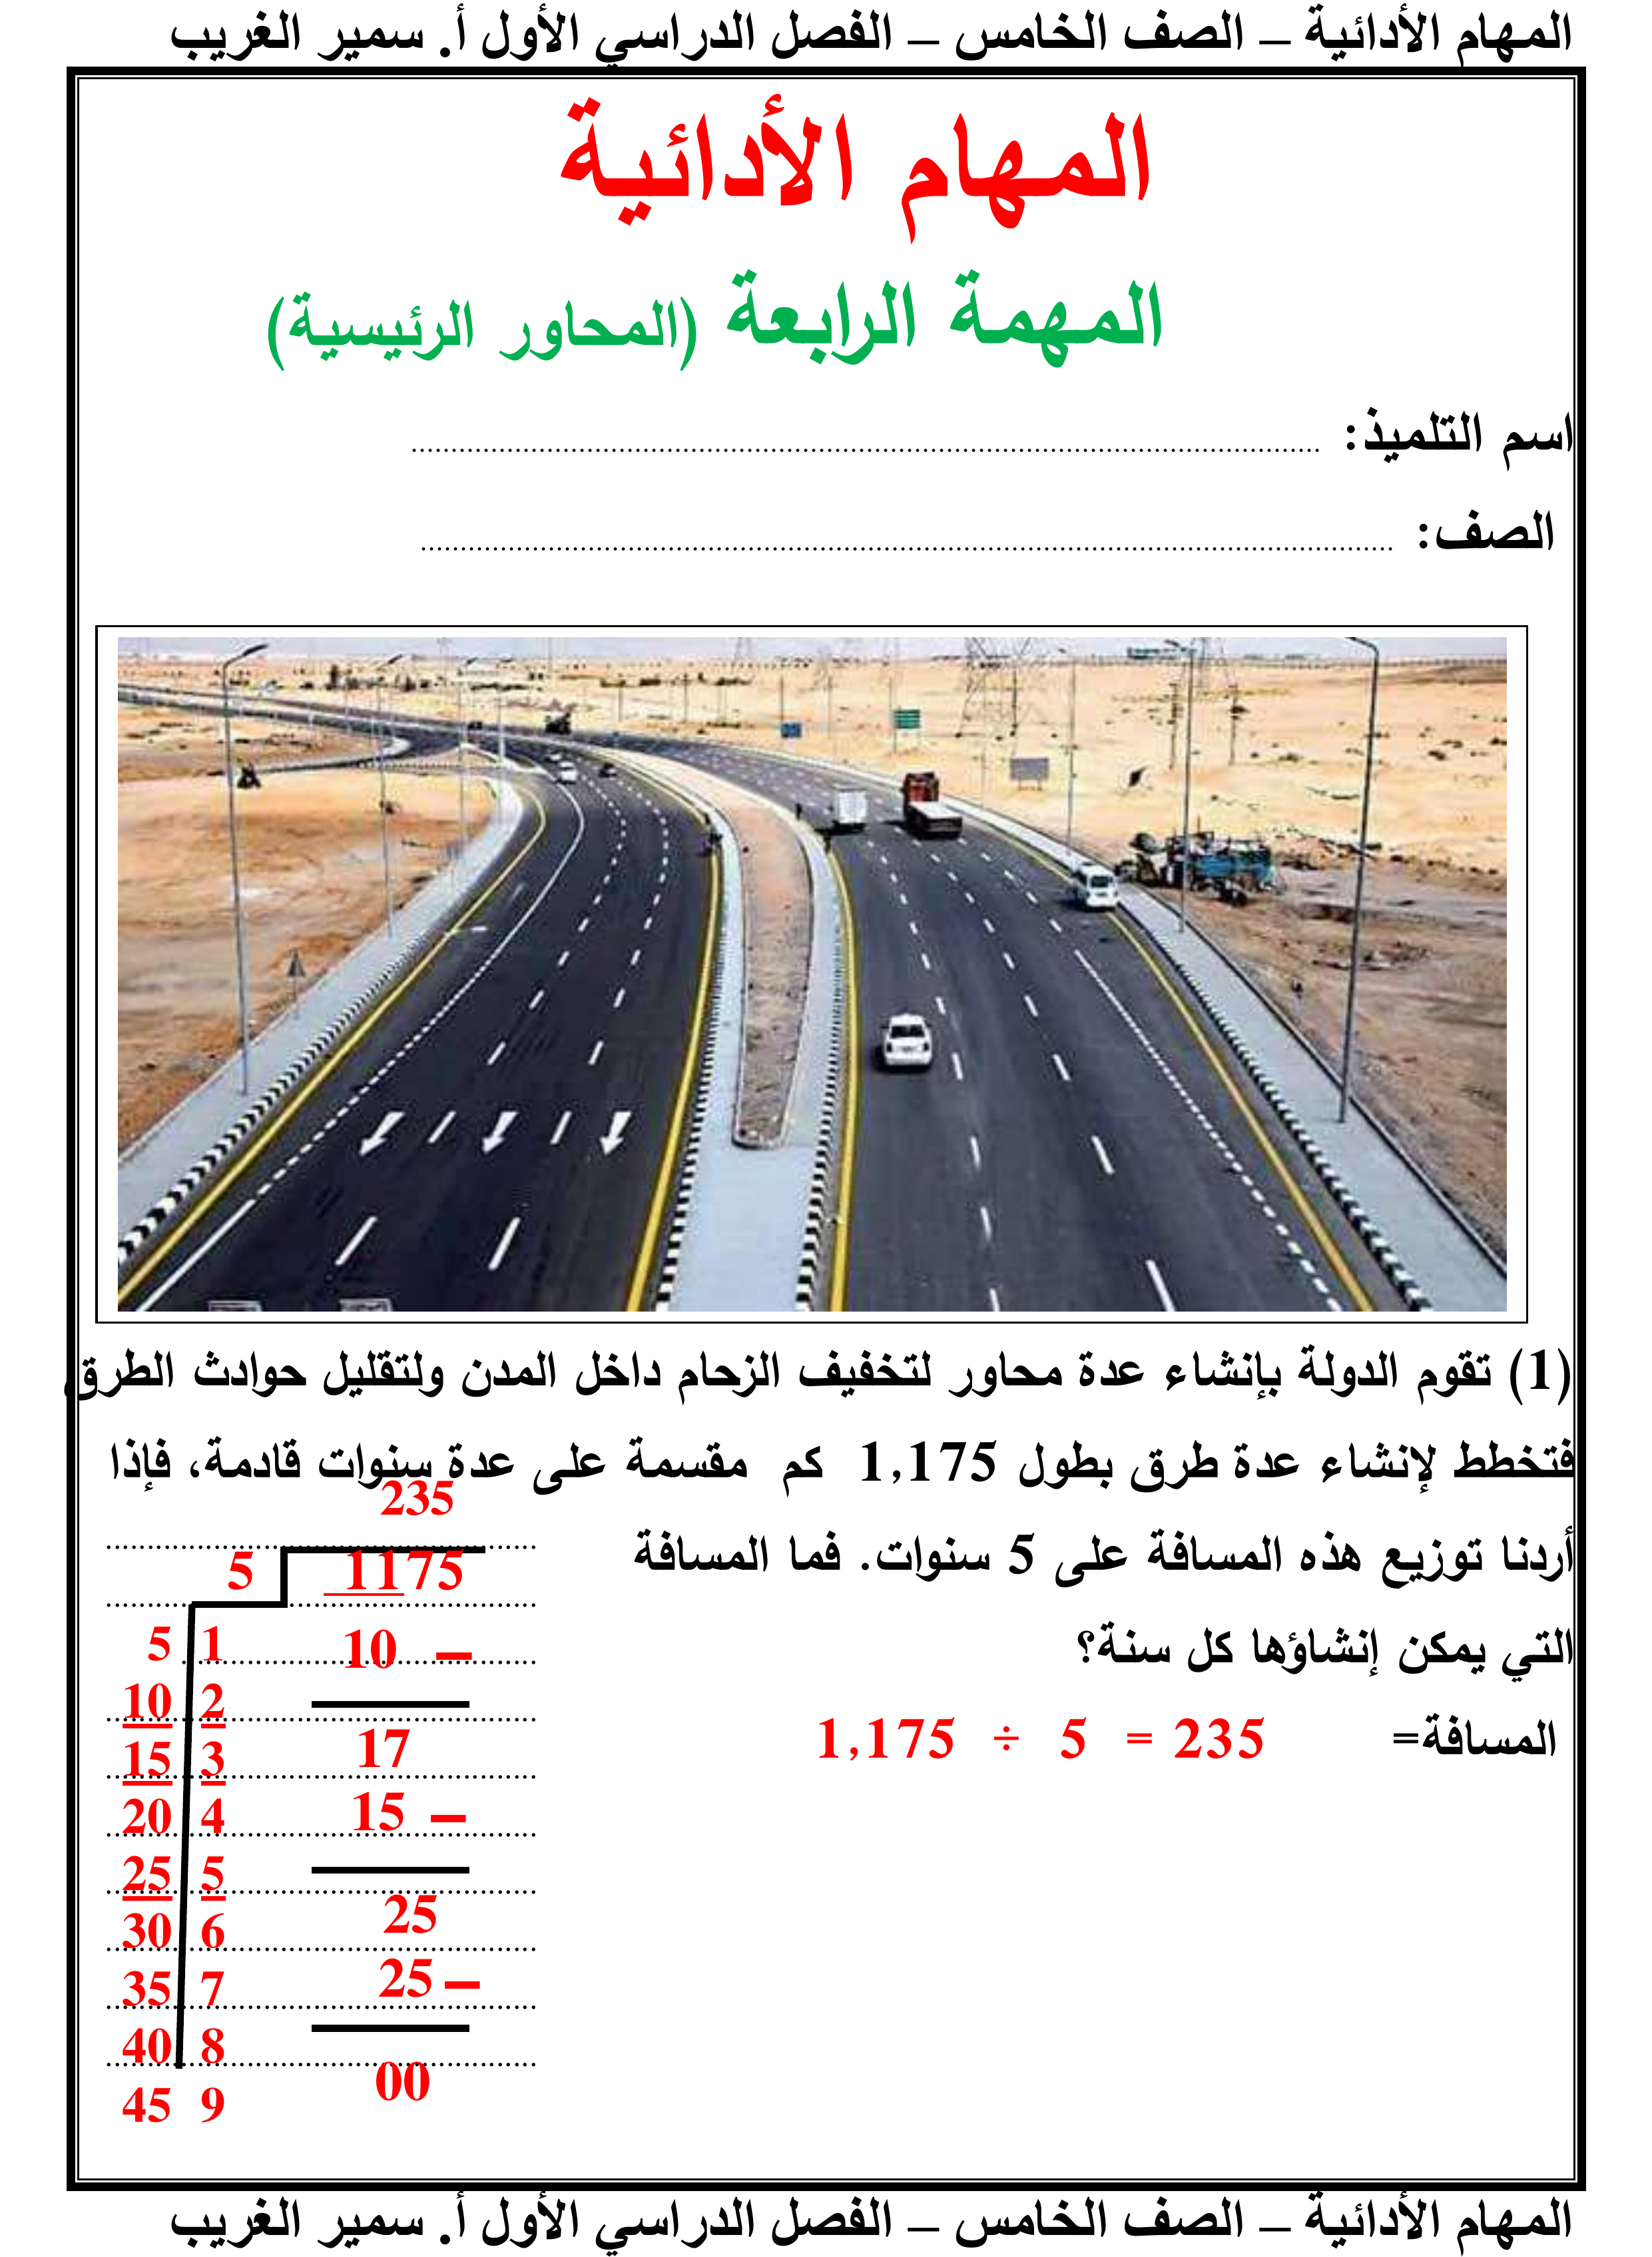 المهام الأدائية – الصف الخامس – الفصل الدراسي الأول أ. سمير الغريب
المهام الأدائية
المهمة الرابعة (المحاور الرئيسية)
اسم التلميذ: ................................................
الصف: ................................................
(1) تقوم الدولة بإنشاء عدة محاور لتخفيف الزحام داخل المدن ولتقليل حوادث الطرق
فتخطط لإنشاء عدة طرق بطول 1,175 كم مقسمة على عدة سنوات قادمة، فإذا
أردنا توزيع هذه المسافة على 5 سنوات. فما المسافة
التي يمكن إنشاؤها كل سنة؟
المسافة= 1,175 ÷ 5 = 235
235
5 1175
5 1 10 –
10 2
15 3 17
20 4 15 –
25 5
30 6 25
35 7 25 –
40 8
45 9 00
المهام الأدائية – الصف الخامس – الفصل الدراسي الأول أ. سمير الغريب